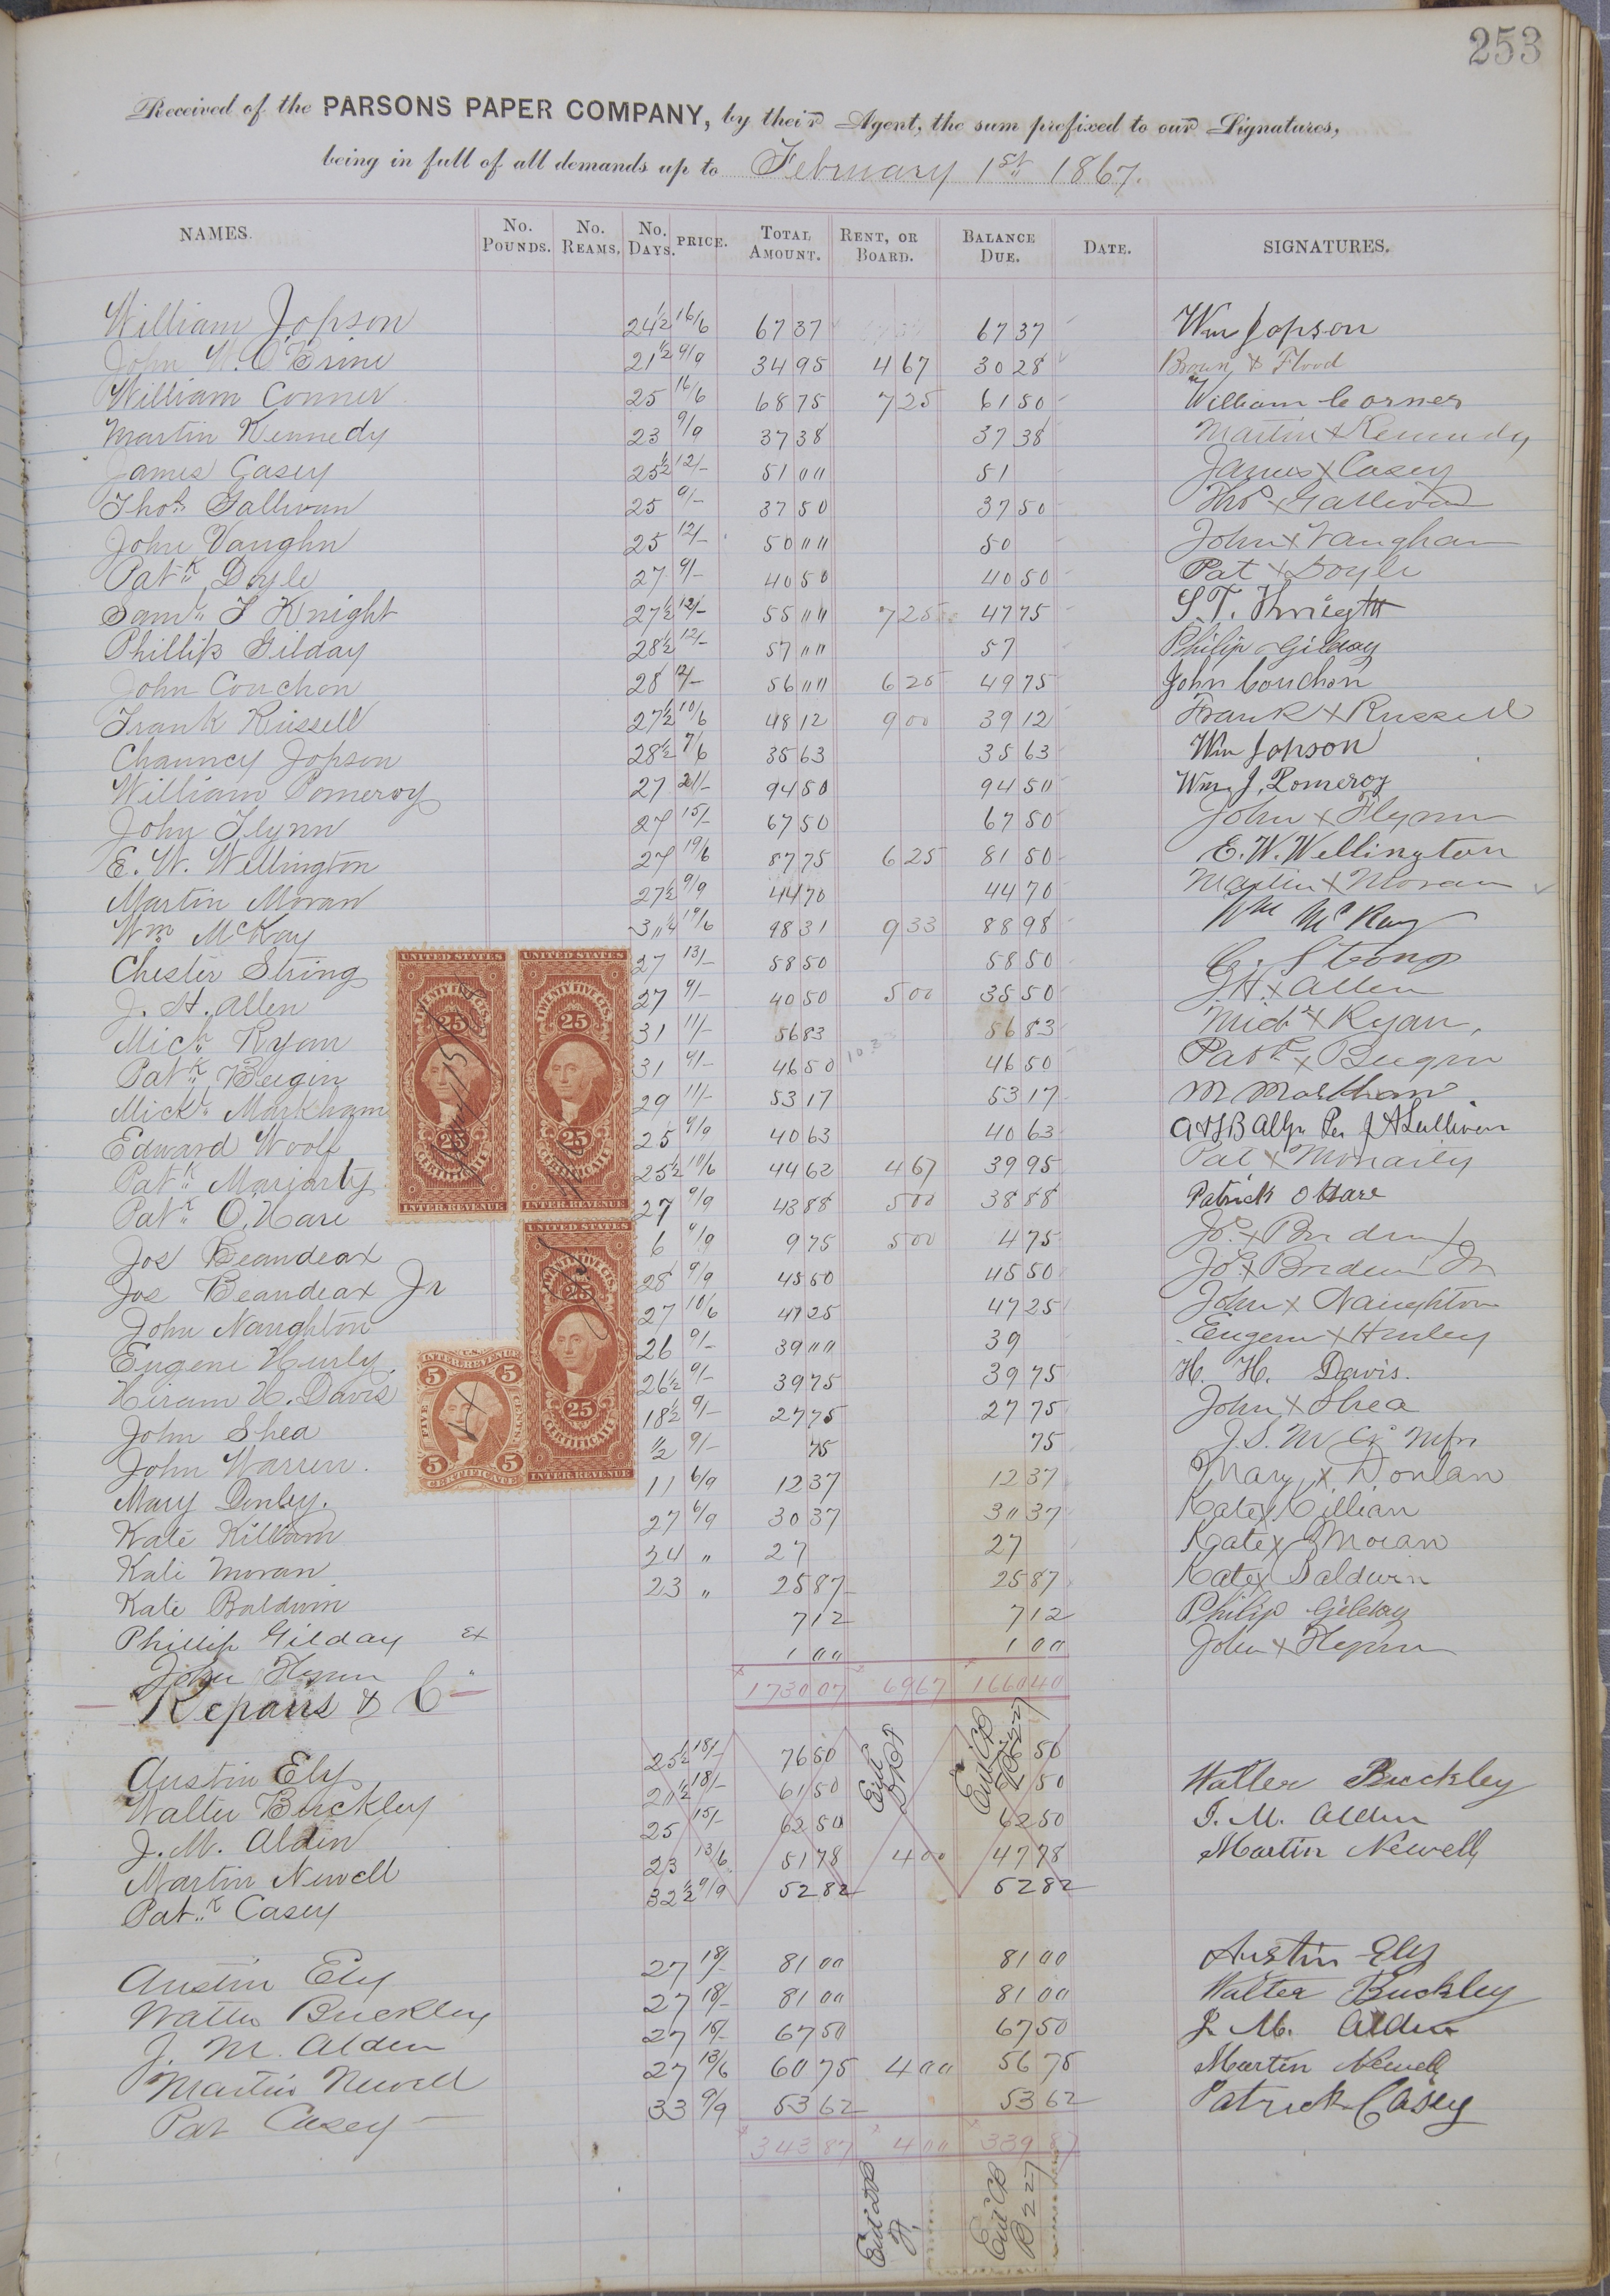 253
Received of the PARSONS PAPER COMPANY, by their Agent, the sum prefixed to our Signatures,
being in full of all demands up to February 1st 1867.
NAMES. No. POUNDS. No. REAMS. No. DAYS. PRICE. TOTAL AMOUNT. RENT, OR BOARD. BALANCE DUE. DATE. SIGNATURES.
William Jopson 24½ 16/6 67 37 67 37 Wm Jopson
John W. O'Brine 21½ 9/9 34 95 4 67 30 28 Brown & Flood
William Conner 25 16/6 68 75 7 25 61 50 William Corner
Martin Kennedy 23 9/9 37 38 37 38 Martin x Kennedy
James Casey 25½ 12/- 51 00 51 James x Casey
Thos Gallivan 25 9/- 37 50 37 50 Thos x Gallivan
John Vaughn 25 12/- 50 00 50 John x Vaughan
Patk Doyle 27 9/- 40 50 40 50 Pat x Doyle
Saml T Knight 27½ 12/- 55 00 7 25 47 75 S. T. Knight
Phillip Gilday 28½ 12/- 57 00 57 Philip Gilday
John Couchon 28 12/- 56 00 6 25 49 75 John Couchon
Frank Russell 27½ 10/6 48 12 9 00 39 12 Frank x Russell
Chauncy Jopson 28½ 7/6 35 63 35 63 Wm Jopson
William Pomeroy 27 21/- 94 50 94 50 Wm J. Pomeroy
John Flynn 27 15/- 67 50 67 50 John x Flynn
E. W. Wellington 27 19/6 87 75 6 25 81 50 E. W. Wellington
Martin Moran 27½ 9/9 44 70 44 70 Martin x Moran
Wm McKay 30¼ 19/6 98 31 9 33 88 98 Wm McKay
Chester Strong 27 13/- 58 50 58 50 C. Strong
J. H. Allen 27 9/- 40 50 5 00 35 50 J. H. x Allen
Mich Ryan 31 11/- 56 83 56 83 Mich x Ryan.
Patk Bergin 31 9/- 46 50 46 50 Patk x Bergin
Mickl Markham 29 11/- 53 17 53 17 M Markham
Edward Woolf 25 9/9 40 63 40 63 A & J B Allyn Per J A Sullivan
Patk Mariarty 25½ 10/6 44 62 4 67 39 95 Pat x Moriarty
Patk O,Hare 27 9/9 43 88 5 00 38 88 Patrick O Hare
Jos Beandeax 6 9/9 9 75 5 00 4 75
Jos Beandeax Jr 28 9/9 45 50 45 50
John Naughton 27 10/6 47 25 47 25 John x Naughton
Eugene Hurly 26 9/- 39 00 39 Eugene x Hurley
Hiram H. Davis 26½ 9/- 39 75 39 75 H. H. Davis.
John Shea 18½ 9/- 27 75 27 75 John x Shea
John Warren. ½ 9/- 75 75
Mary Donley. 11 6/9 12 37 12 37 Mary x Donlan
Kate Killiam 27 6/9 30 37 30 37 Kate x Killian
Kate Moran 24 " 27 27 Kate x Moran
Kate Baldwin 23 " 25 87 25 87 Kate x Baldwin
Phillip Gilday Ex 7 12 7 12 Philip Gilday
John Flynn " 1 00 1 00 John x Flynn
1730 07 69 67 1660 40
Repairs & C
Austin Ely 25½ 18/- 76 50 50
Walter Buckley 20½ 18/- 61 50 50 Walter Buckley
J. M. Alden 25 15/- 62 50 62 50 J. M. Alden
Martin Newell 23 13/6 51 78 4 00 47 78 Martin Newell
Patk Casey 32½ 9/9 52 82 52 82
Austin Ely 27 18/- 81 00 81 00 Austin Ely
Walter Buckley 27 18/- 81 00 81 00 Walter Buckley
J. M. Alden 27 15/- 67 50 67 50 J. M. Alden
Martin Newell 27 13/6 60 75 4 00 56 75 Martin Newell
Pat Casey 33 9/9 53 62 53 62 Patrick Casey
343 87 4 00 339 87
UNITED STATES
TWENTY FIVE CTS.
25
25
CERTIFICATE
INTER. REVENUE
UNITED STATES
TWENTY FIVE CTS.
25
25
CERTIFICATE
INTER. REVENUE
UNITED STATES
TWENTY FIVE CTS.
25
25
CERTIFICATE
INTER. REVENUE
U.S.
INTER. REVENUE
5 5
FIVE CENTS
5 5
CERTIFICATE